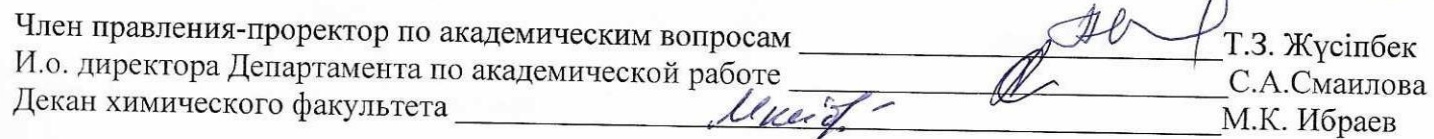 Член правления-проректор по академическим вопросам Т.З. Жүсіпбек
И.о. директора Департамента по академической работе С.А.Смаилова
Декан химического факультета М.К. Ибраев